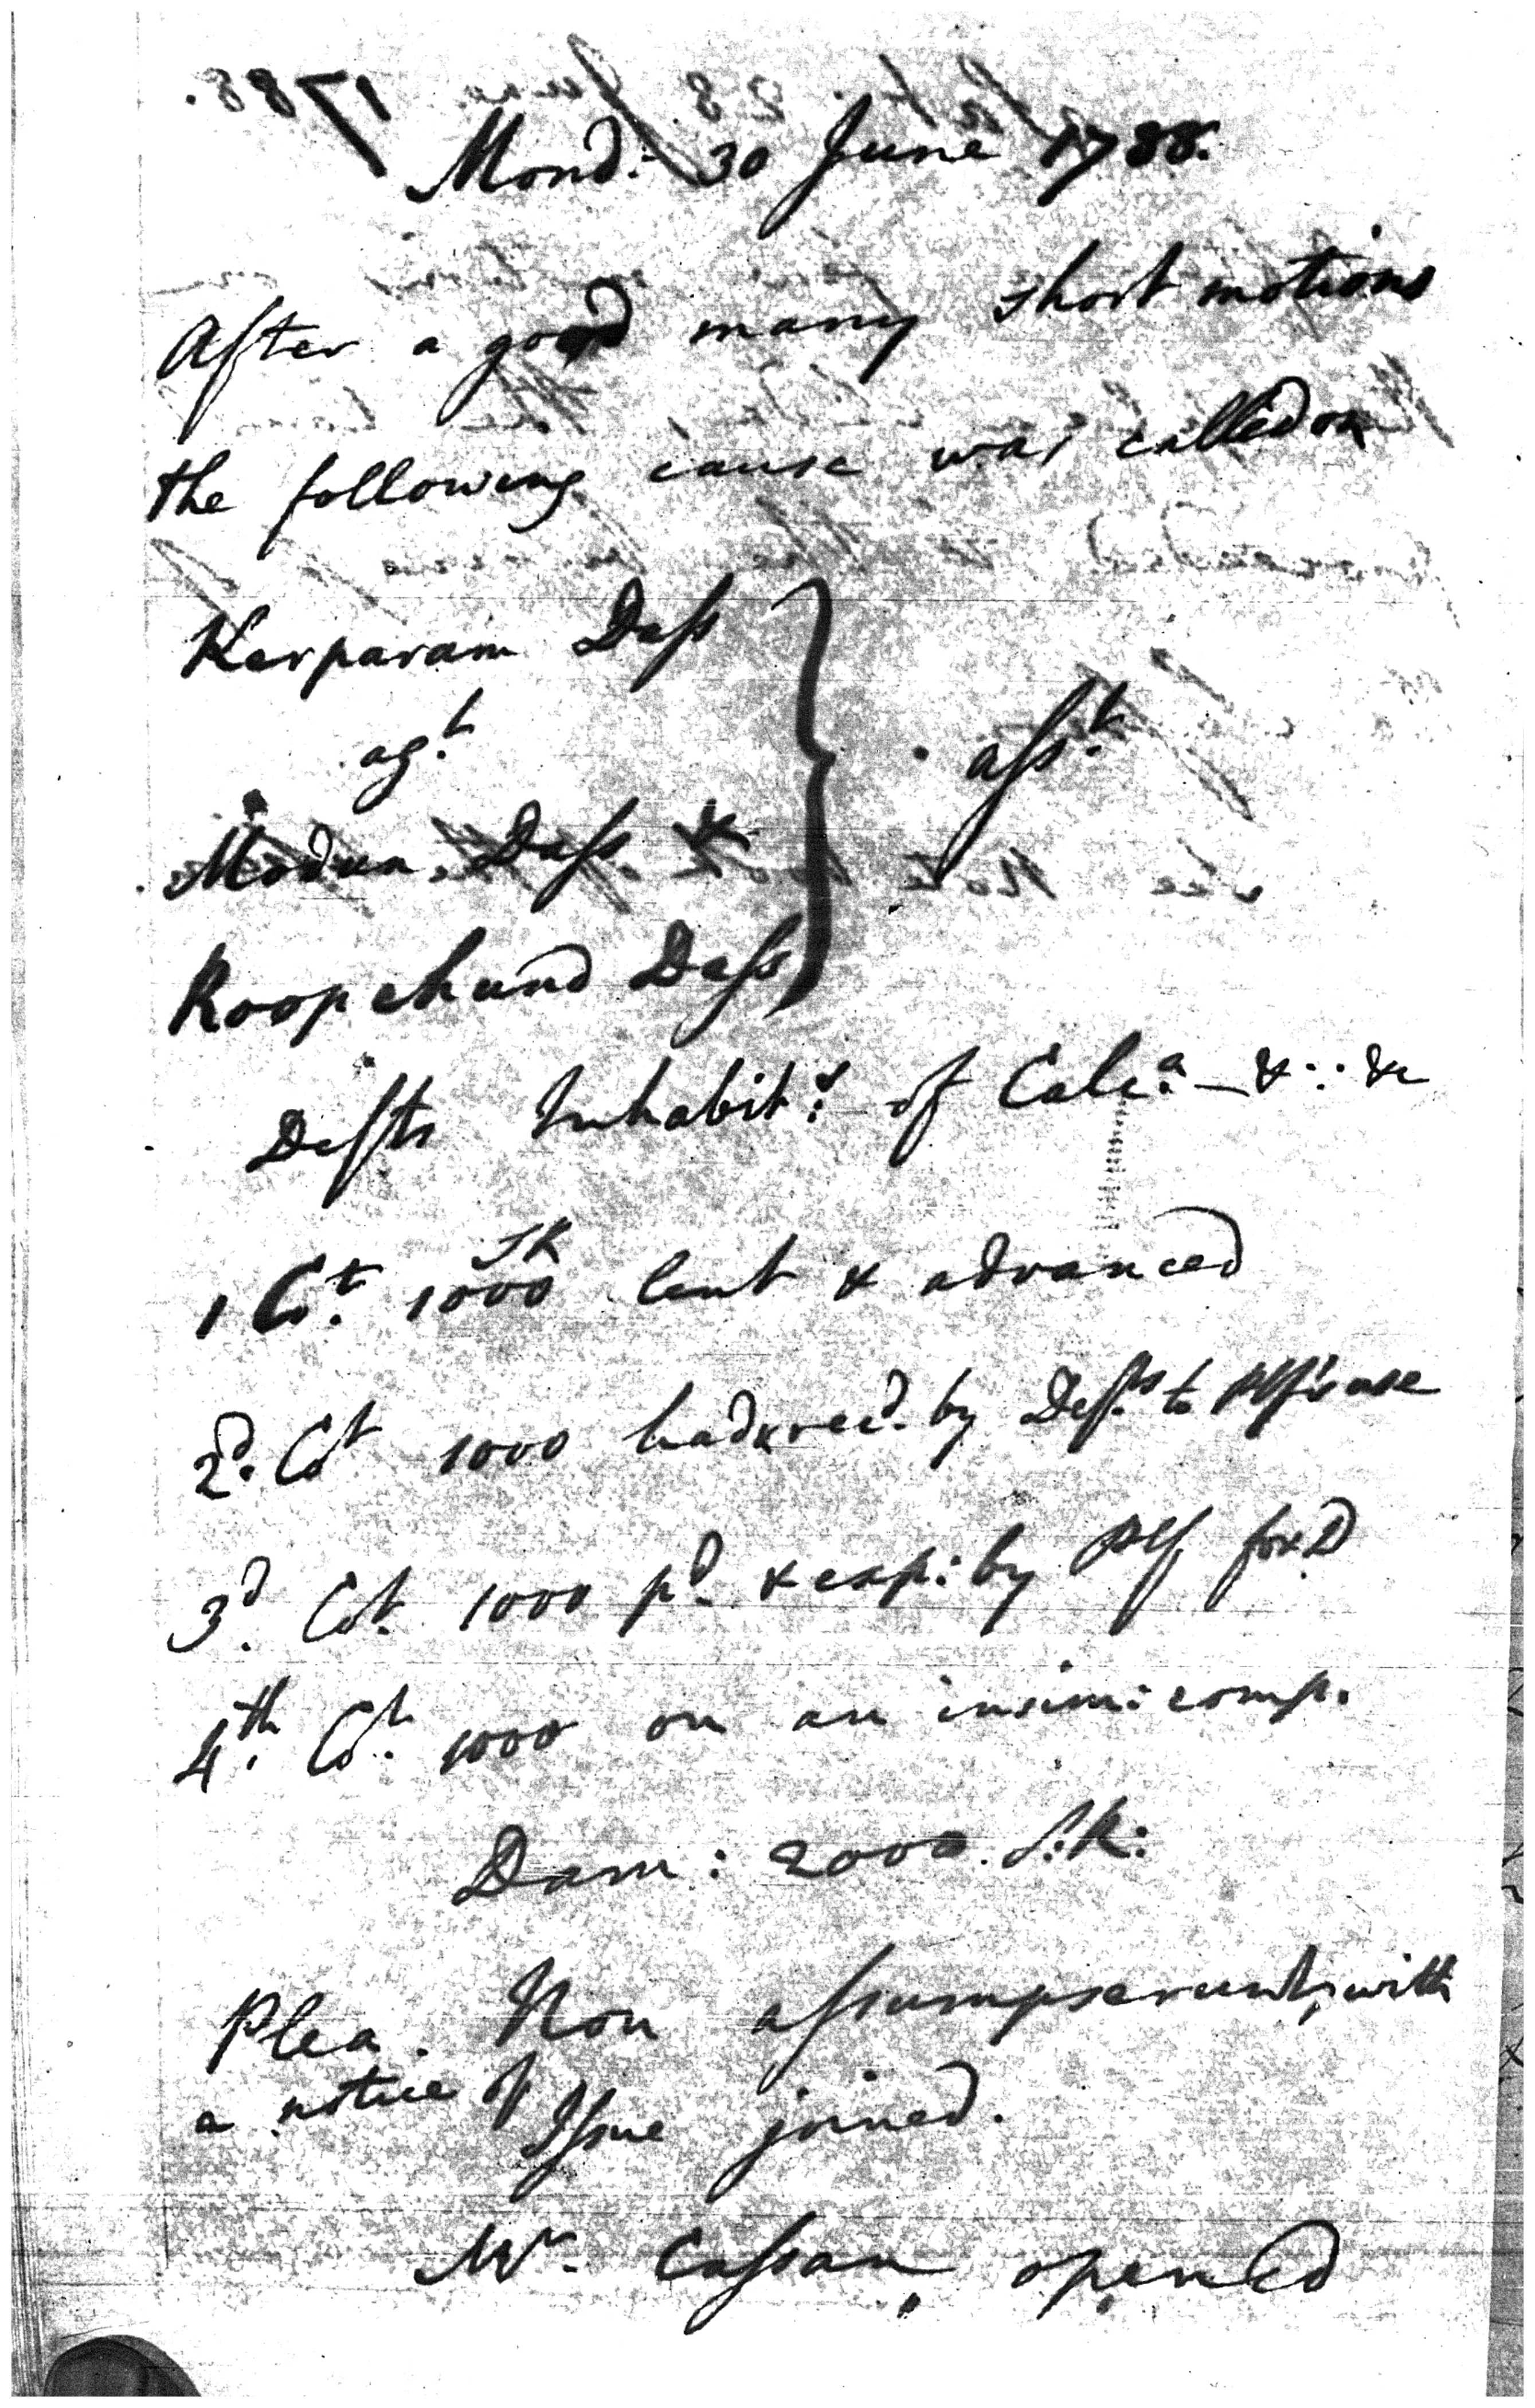 Mond: 30 June 1788.
After a good many short motions
the following cause was called on
Kerparam Dass
agt.
Modun Dass &
Roopchund Dass
asst.
Defts Inhabits: of Calca. — &:: &c
SR
1 Ct. 1000 lent & advanced
2d. Ct 1000 had & recd. by Defts to Plf's use
3d. Ct. 1000 pd. & exp: by Plf for D
4th. Ct. 1000 on an insim: comp.
Dam: 2000. S:R:
Plea. Non assumpserunt, with
a notice of
Issue joined.
Mr. Cassan opened